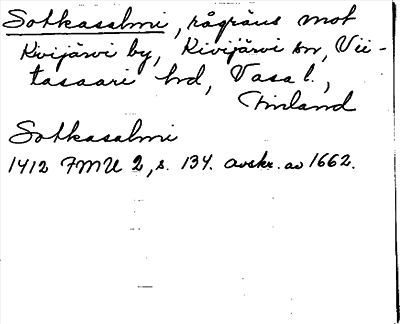 Sotkasalmi, rågräns mot
Kivijärvi by, Kivijärvi sn, Vii-
tasaari hd, Vasa l.,
Finland
Sotkasalmi
1412 FMU 2, s. 134. avskr. av 1662.